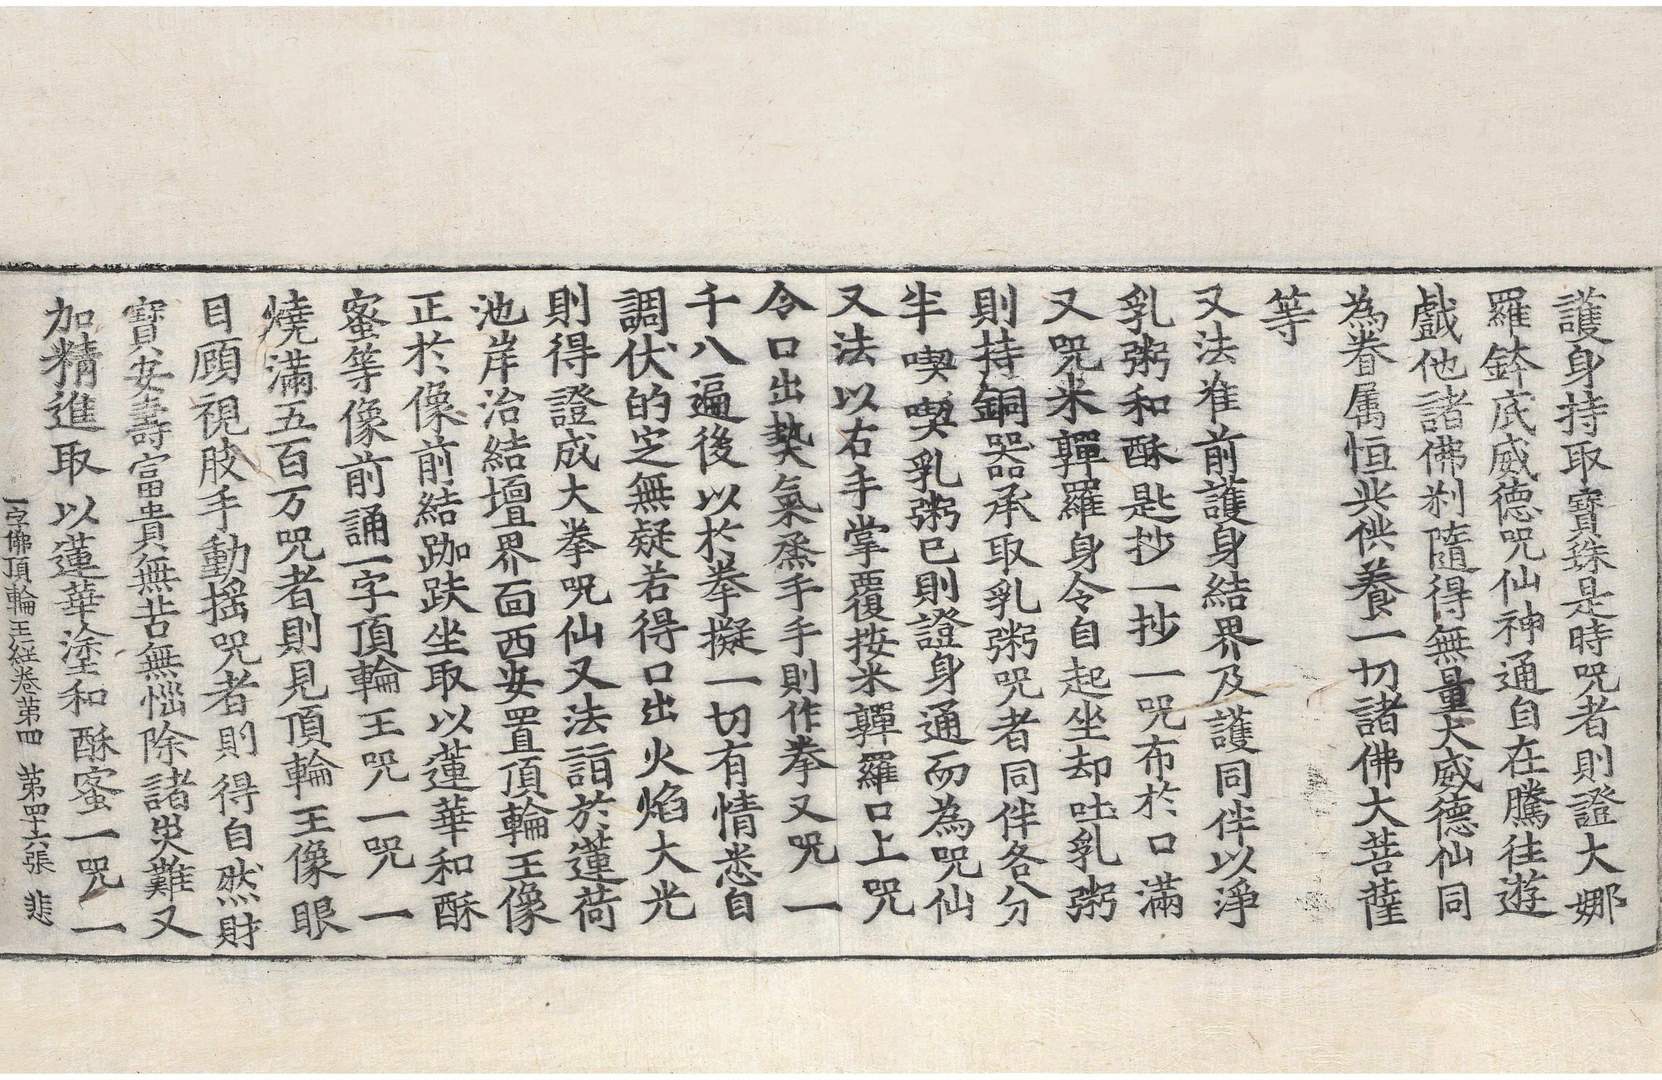 護身持取寶珠是時咒者則證大娜
羅鉢底威德咒仙神通自在騰往遊
戲他諸佛刹隨得無量大威德仙同
為眷属恒共供養一切諸佛大菩薩
等
又法准前護身結界及護同伴以淨
乳粥和酥匙抄一抄一咒布於口滿
又咒米鄲羅身令自起坐却吐乳粥
則持銅器承取乳粥咒者同伴各分
半喫喫乳粥已則證身通而為咒仙
又法以右手掌覆按米鄲羅口上咒
令口出𫝑氣烝手手則作拳又咒一
千八遍後以於拳擬一切有情悉自
調伏的定無疑若得口出火焰大光
則得證成大拳咒仙又法詣於蓮荷
池岸治結壇界面西安置頂輪王像
正於像前結跏趺坐取以蓮華和酥
蜜等像前誦一字頂輪王咒一咒一
燒滿五百万咒者則見頂輪王像眼
目顧視肢手動搖咒者則得自然財
寶安壽富貴無苦無惱除諸災難又
加精進取以蓮華塗和酥蜜一咒一
一字佛頂輪王経卷苐四 苐四十六張 悲